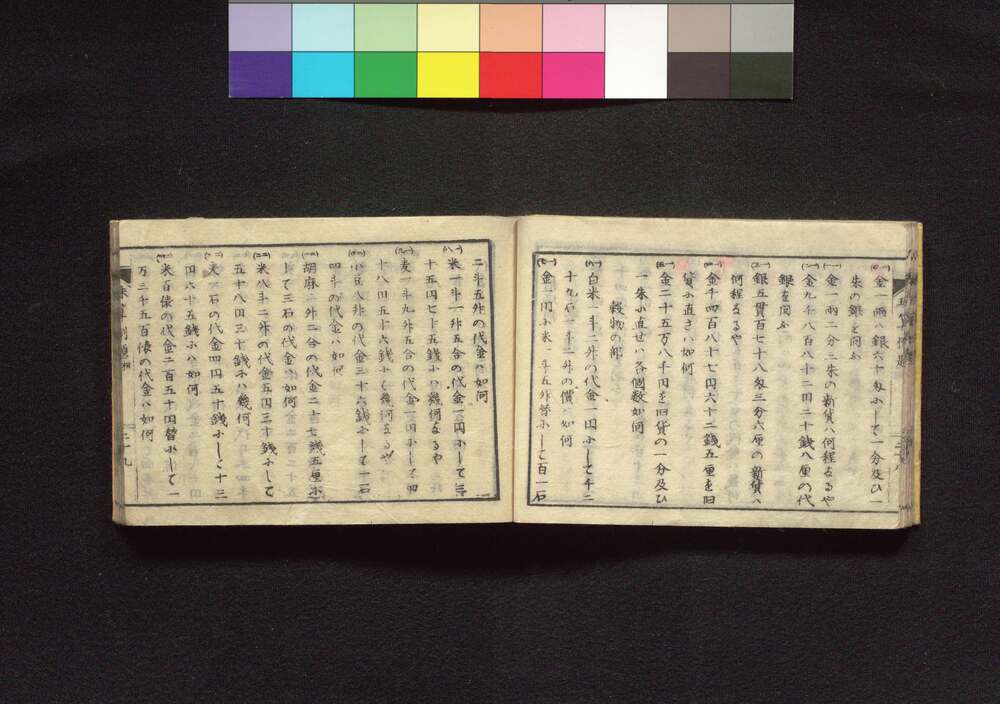 金一両ハ銀六十匁ふして一分及ひ一
朱の銀を問ふ
金一両二分三朱の新貨ハ何程なるや
金九千八百八十二円二十銭八厘の代
銀を問ふ
銀五貫百七十八匁三分六厘の新貨ハ
何程なるや
金千四百八十七円六十二銭五厘を旧
貨ふ直さハ如何
金二十五万八千円を旧貨の一分及ひ
一朱ふ直せハ各個数如何
穀物の部
白米一斗二升の代金一円ふして千二
十九石一斗二升の價ハ如何
金一円ふ米一斗五升替ふして百一石
二斗五升の代金ハ如何
米一斗一升五合の代金一円ふして三
十五円七十五銭ふハ幾何なるや
麦一斗九升五合の代金一円ふして四
十八円五十六銭ふハ幾何なるや
小豆八升の代金三十六銭ふして一石
四斗の代金ハ如何
胡麻一升二合の代金二十七銭五厘ふ
して三石の代金ハ如何
米八斗二升の代金五円三十銭ふして
五十八円三十銭ふハ幾何
大一石の代金四円五十銭ふして十三
円六十五銭ふハ如何
米百俵の代金二百五十円替ふして一
万三千五百俵の代金ハ如何
二十九